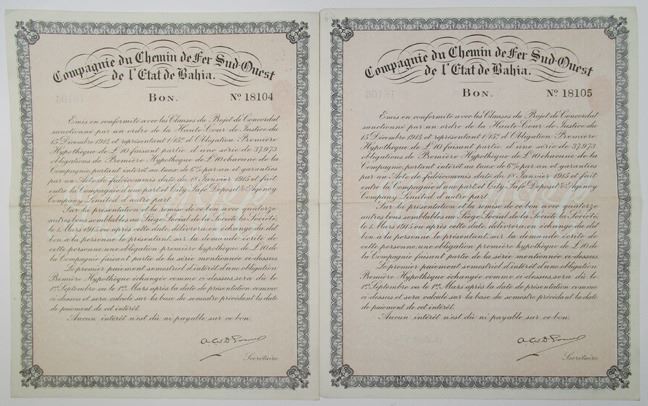 Compagnie du Chemin de Fer Sud-Ouest
de l'Etat de Bahia.
BON. Nº 18104
Emis en conformité avec les Clauses du Projet de Concordat
sanctionné par un ordre de la Haute Cour de Justice du
15 Décembre 1914 et représentant 1/15e d'Obligation Première
Hypothèque de L 10 faisant partie d'une série de 37,973
obligations de Première Hypothèque de L 10 chacune de la
Compagnie portant intérêt au taux de 6% par an et garanties
par un Acte de fidéicommis daté du 1er Janvier 1915 et fait
entre la Compagnie d'une part et City Safe Deposit & Agency
Company Limited d'autre part.
Sur la présentation et la remise de ce bon avec quatorze
autres bons semblables au Siège Social de la Société la Société,
le 1. Mars 1915 ou après cette date délivrera en échange du dit
bon à la personne le présentant sur la demande écrite de
cette personne une obligation première hypothèque de L 10 de
la Compagnie faisant partie de la série mentionnée ci-dessus.
Le premier paiement semestriel d'intérêt d'une obligation
Première Hypothèque échangée comme ci-dessus sera dû le
1er Septembre ou le 1er Mars après la date de présentation comme
ci-dessus et sera calculé sur la base du semestre précédant la date
de paiement de cet intérêt.
Aucun intérêt n'est dû ni payable sur ce bon.
Secrétaire
Compagnie du Chemin de Fer Sud-Ouest
de l'Etat de Bahia.
BON. Nº 18105
Emis en conformité avec les Clauses du Projet de Concordat
sanctionné par un ordre de la Haute Cour de Justice du
15 Décembre 1914 et représentant 1/15e d'Obligation Première
Hypothèque de L 10 faisant partie d'une série de 37,973
obligations de Première Hypothèque de L 10 chacune de la
Compagnie portant intérêt au taux de 6% par an et garanties
par un Acte de fidéicommis daté du 1er Janvier 1915 et fait
entre la Compagnie d'une part et City Safe Deposit & Agency
Company Limited d'autre part.
Sur la présentation et la remise de ce bon avec quatorze
autres bons semblables au Siège Social de la Société la Société,
le 1. Mars 1915 ou après cette date délivrera en échange du dit
bon à la personne le présentant sur la demande écrite de
cette personne une obligation première hypothèque de L 10 de
la Compagnie faisant partie de la série mentionnée ci-dessus.
Le premier paiement semestriel d'intérêt d'une obligation
Première Hypothèque échangée comme ci-dessus sera dû le
1er Septembre ou le 1er Mars après la date de présentation comme
ci-dessus et sera calculé sur la base du semestre précédant la date
de paiement de cet intérêt.
Aucun intérêt n'est dû ni payable sur ce bon.
Secrétaire